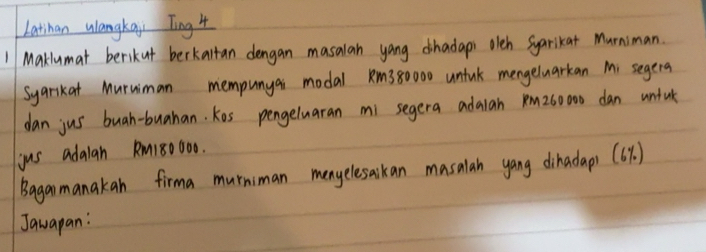 Latihan ulangkaji Ting 4
1 Maklumat berikut berkaitan dengan masalah yang dihadapi oleh Syarikat Murniman.
Syarikat Muruiman mempunyai modal RM380000 untuk mengeluarkan mi segera
dan jus buah-buahan. Kos pengeluaran mi segera adalah RM260000 dan untuk
jus adalah RM180000.
Bagaimanakah firma murniman menyelesaikan masalah yang dihadapi (6%)
Jawapan: